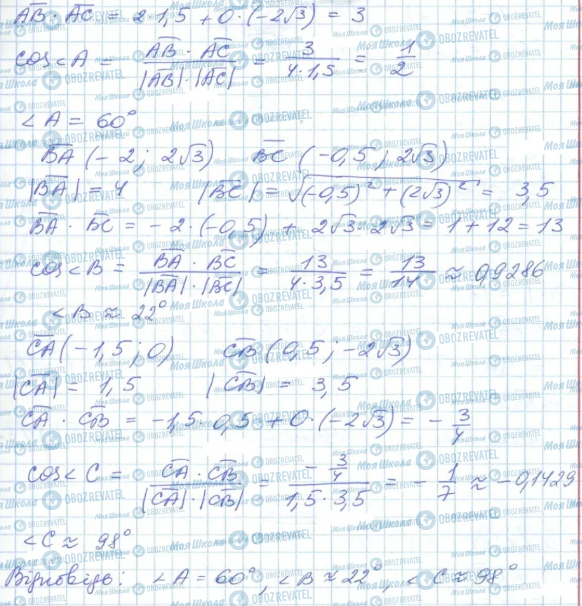 AB · AC = 2·1,5 + 0·(-2√3) = 3
cos∠A = (AB · AC)/(|AB|·|AC|) = 3/(4·1,5) = 1/2
∠A = 60°
BA (-2; 2√3) BC (-0,5; 2√3)
|BA| = 4 |BC| = √((-0,5)² + (2√3)²) = 3,5
BA · BC = -2·(-0,5) + 2√3·2√3 = 1 + 12 = 13
cos∠B = (BA · BC)/(|BA|·|BC|) = 13/(4·3,5) = 13/14 ≈ 0,9286
∠B ≈ 22°
CA (-1,5; 0) CB (0,5; -2√3)
|CA| = 1,5 |CB| = 3,5
CA · CB = -1,5·0,5 + 0·(-2√3) = -3/4
cos∠C = (CA · CB)/(|CA|·|CB|) = (-3/4)/(1,5·3,5) = -1/7 ≈ -0,1429
∠C ≈ 98°
Відповідь: ∠A = 60°, ∠B ≈ 22°, ∠C ≈ 98°